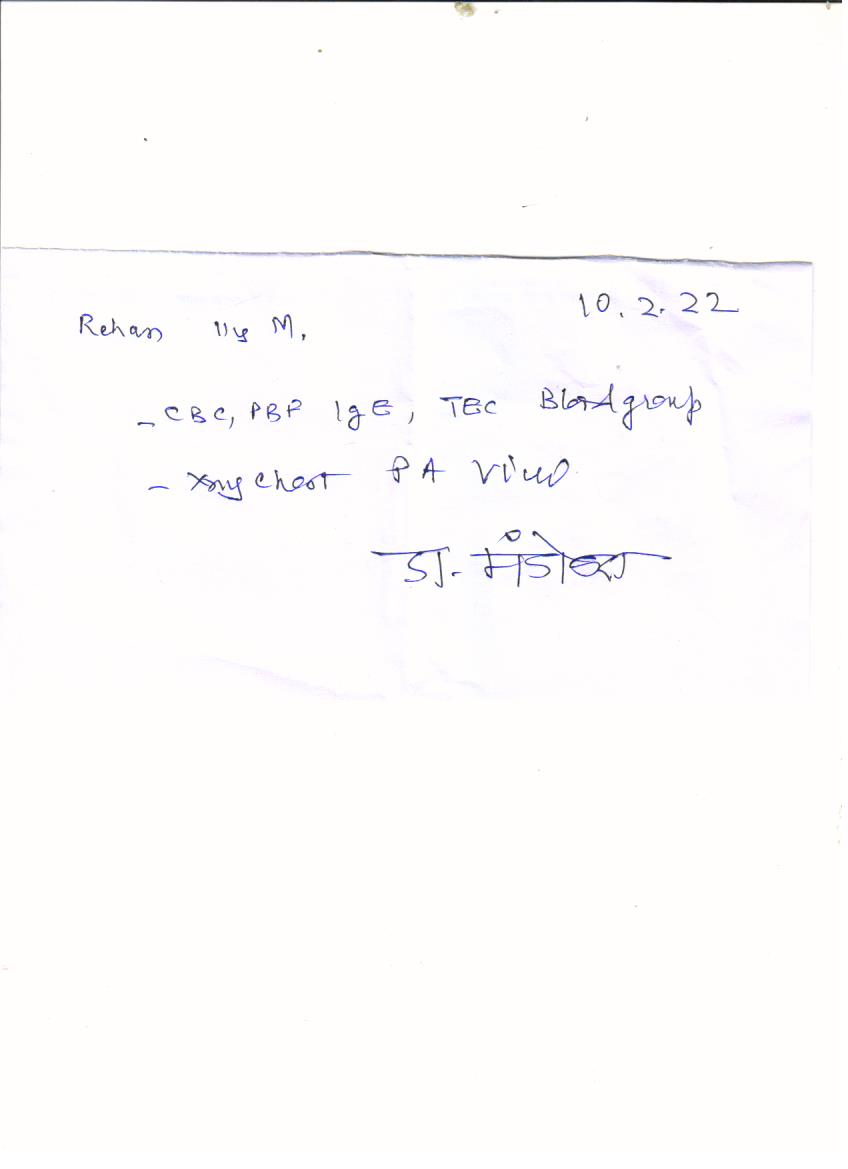 10.2.22
Rehan 11y M.
- CBC, PBF IgE, TEC Blood group
- Xray chest PA View
डा.